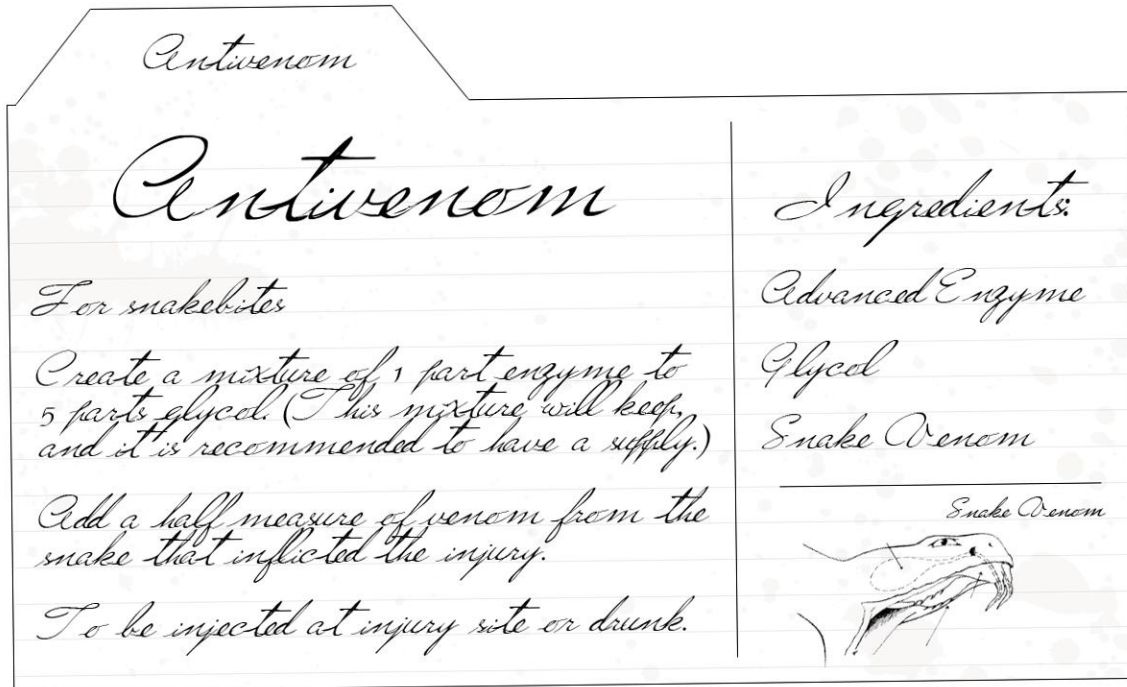 Antivenom
Antivenom
For snakebites
Create a mixture of 1 part enzyme to
5 parts glycol. (This mixture will keep,
and it is recommended to have a supply.)
Add a half measure of venom from the
snake that inflicted the injury.
To be injected at injury site or drunk.
Ingredients:
Advanced Enzyme
Glycol
Snake Venom
Snake Venom